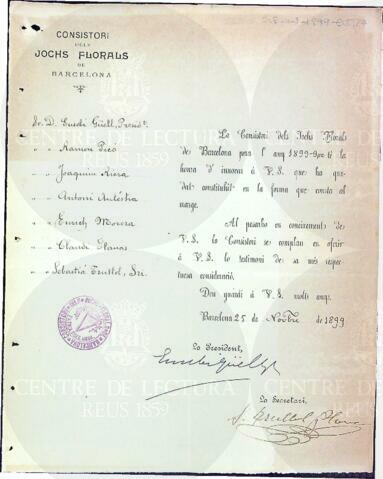 CONSISTORI
DELS
JOCHS FLORALS
DE
BARCELONA
Sr. D. Eusebi Güell, Presidt.
" " Ramon Picó
" " Joaquim Riera
" " Antoni Aulèstia
" " Enrich Morera
" " Claudi Planas
" " Sebastiá Trullol, Sri.
Lo Consistori dels Jochs Florals
de Barcelona pera l'any 1899-900 té la
honra d' innovar á V. S. que ha que-
dat constituhit en la forma que consta al
marge.
Al posarho en coneixement de
V. S. lo Consistori se complau en oferir
á V. S. lo testimoni de sa més respec-
tuosa consideració.
Deu guardi á V. S. molts anys.
Barcelona 25 de Novbre de 1899
Lo President,
Eusebi Güell
Lo Secretari,
S. Trullol y Plana
CENTRE DE LECTURA
REUS 1859
CENTRE DE LECTURA
REUS 1859